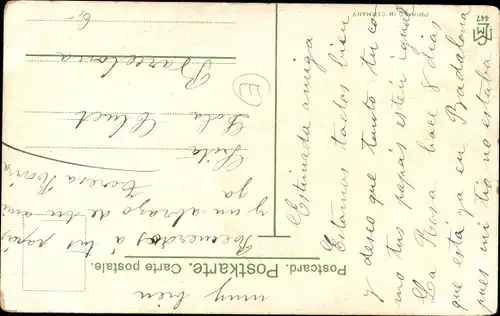 Estimada amiga
Estamos todos bien
y deseo que tanto tu co
mo tus papás esteis igual
La Rosa hace 8 dias
que está ya en Badalona
pues mi tio no estaba
muy bien
Recuerdos á tus papás
y un abrazo de tu ami
ga
Teresa
Srita
Lola Clucet
Barcelona
E
Postcard. Postkarte. Carte postale.
PRINTED IN GERMANY